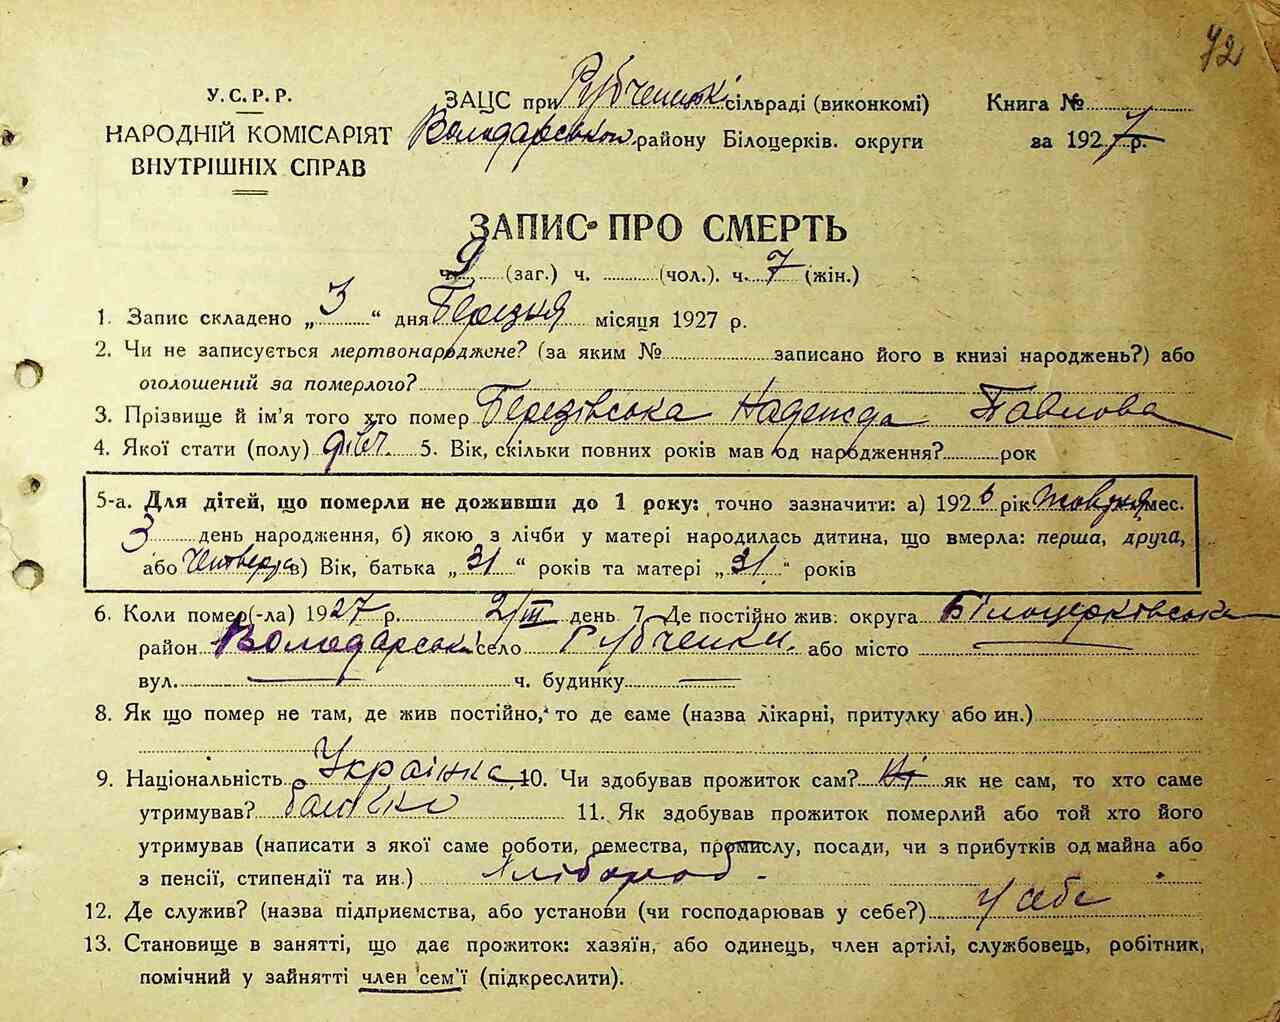 72
У.С.Р.Р.
НАРОДНІЙ КОМІСАРІЯТ
ВНУТРІШНІХ СПРАВ
ЗАЦС при Рубченській сільраді (виконкомі)
Володарського району Білоцерків. округи
Книга №
за 1927 р.
ЗАПИС ПРО СМЕРТЬ
ч. 9 (заг.) ч. (чол.). ч. 7 (жін.)
1. Запис складено „ 3 “ дня Березня місяця 1927 р.
2. Чи не записується мертвонароджене? (за яким № записано його в книзі народжень?) або
оголошений за померлого?
3. Прізвище й ім'я того хто помер Березівська Надежда Павлова
4. Якої стати (полу) дівч. 5. Вік, скільки повних років мав од народження? рок
5-а. Для дітей, що померли не доживши до 1 року: точно зазначити: а) 1926 рік Жовтня мес.
3 день народження, б) якою з лічби у матері народилась дитина, що вмерла: перша, друга,
або Четверта в) Вік, батька „ 31 “ років та матері „ 31 “ років
6. Коли помер(-ла) 1927 р. 2/III день 7. Де постійно жив: округа Білоцерківська
район Володарськ. село Рубченки. або місто
вул. ч. будинку
8. Як що помер не там, де жив постійно, то де саме (назва лікарні, притулку або ин.)
9. Національність Українка 10. Чи здобував прожиток сам? Ні як не сам, то хто саме
утримував? батько 11. Як здобував прожиток померлий або той хто його
утримував (написати з якої саме роботи, ремества, промислу, посади, чи з прибутків од майна або
з пенсії, стипендії та ин.) Хлібороб.
12. Де служив? (назва підприємства, або установи (чи господарював у себе?) У себе
13. Становище в занятті, що дає прожиток: хазяїн, або одинець, член артілі, службовець, робітник,
помічний у зайнятті член сем'ї (підкреслити).